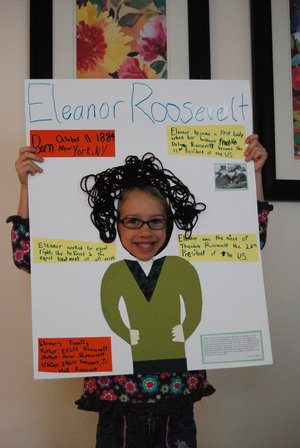 Eleanor Roosevelt
Born: October 11 1884
New York, NY
Eleanor became a First Lady
when her husband Franklin
Delano Roosevelt became the
32nd President of the US.
Eleanor worked for equal
rights. She believed in the
equal treatment of all people.
Eleanor was the niece of
Theodore Roosevelt the 26th
President of the U.S.
Eleanor's Family
Father: Elliott Roosevelt
Mother: Anna Roosevelt
Siblings: Elliott Roosevelt, Jr
Hall Roosevelt